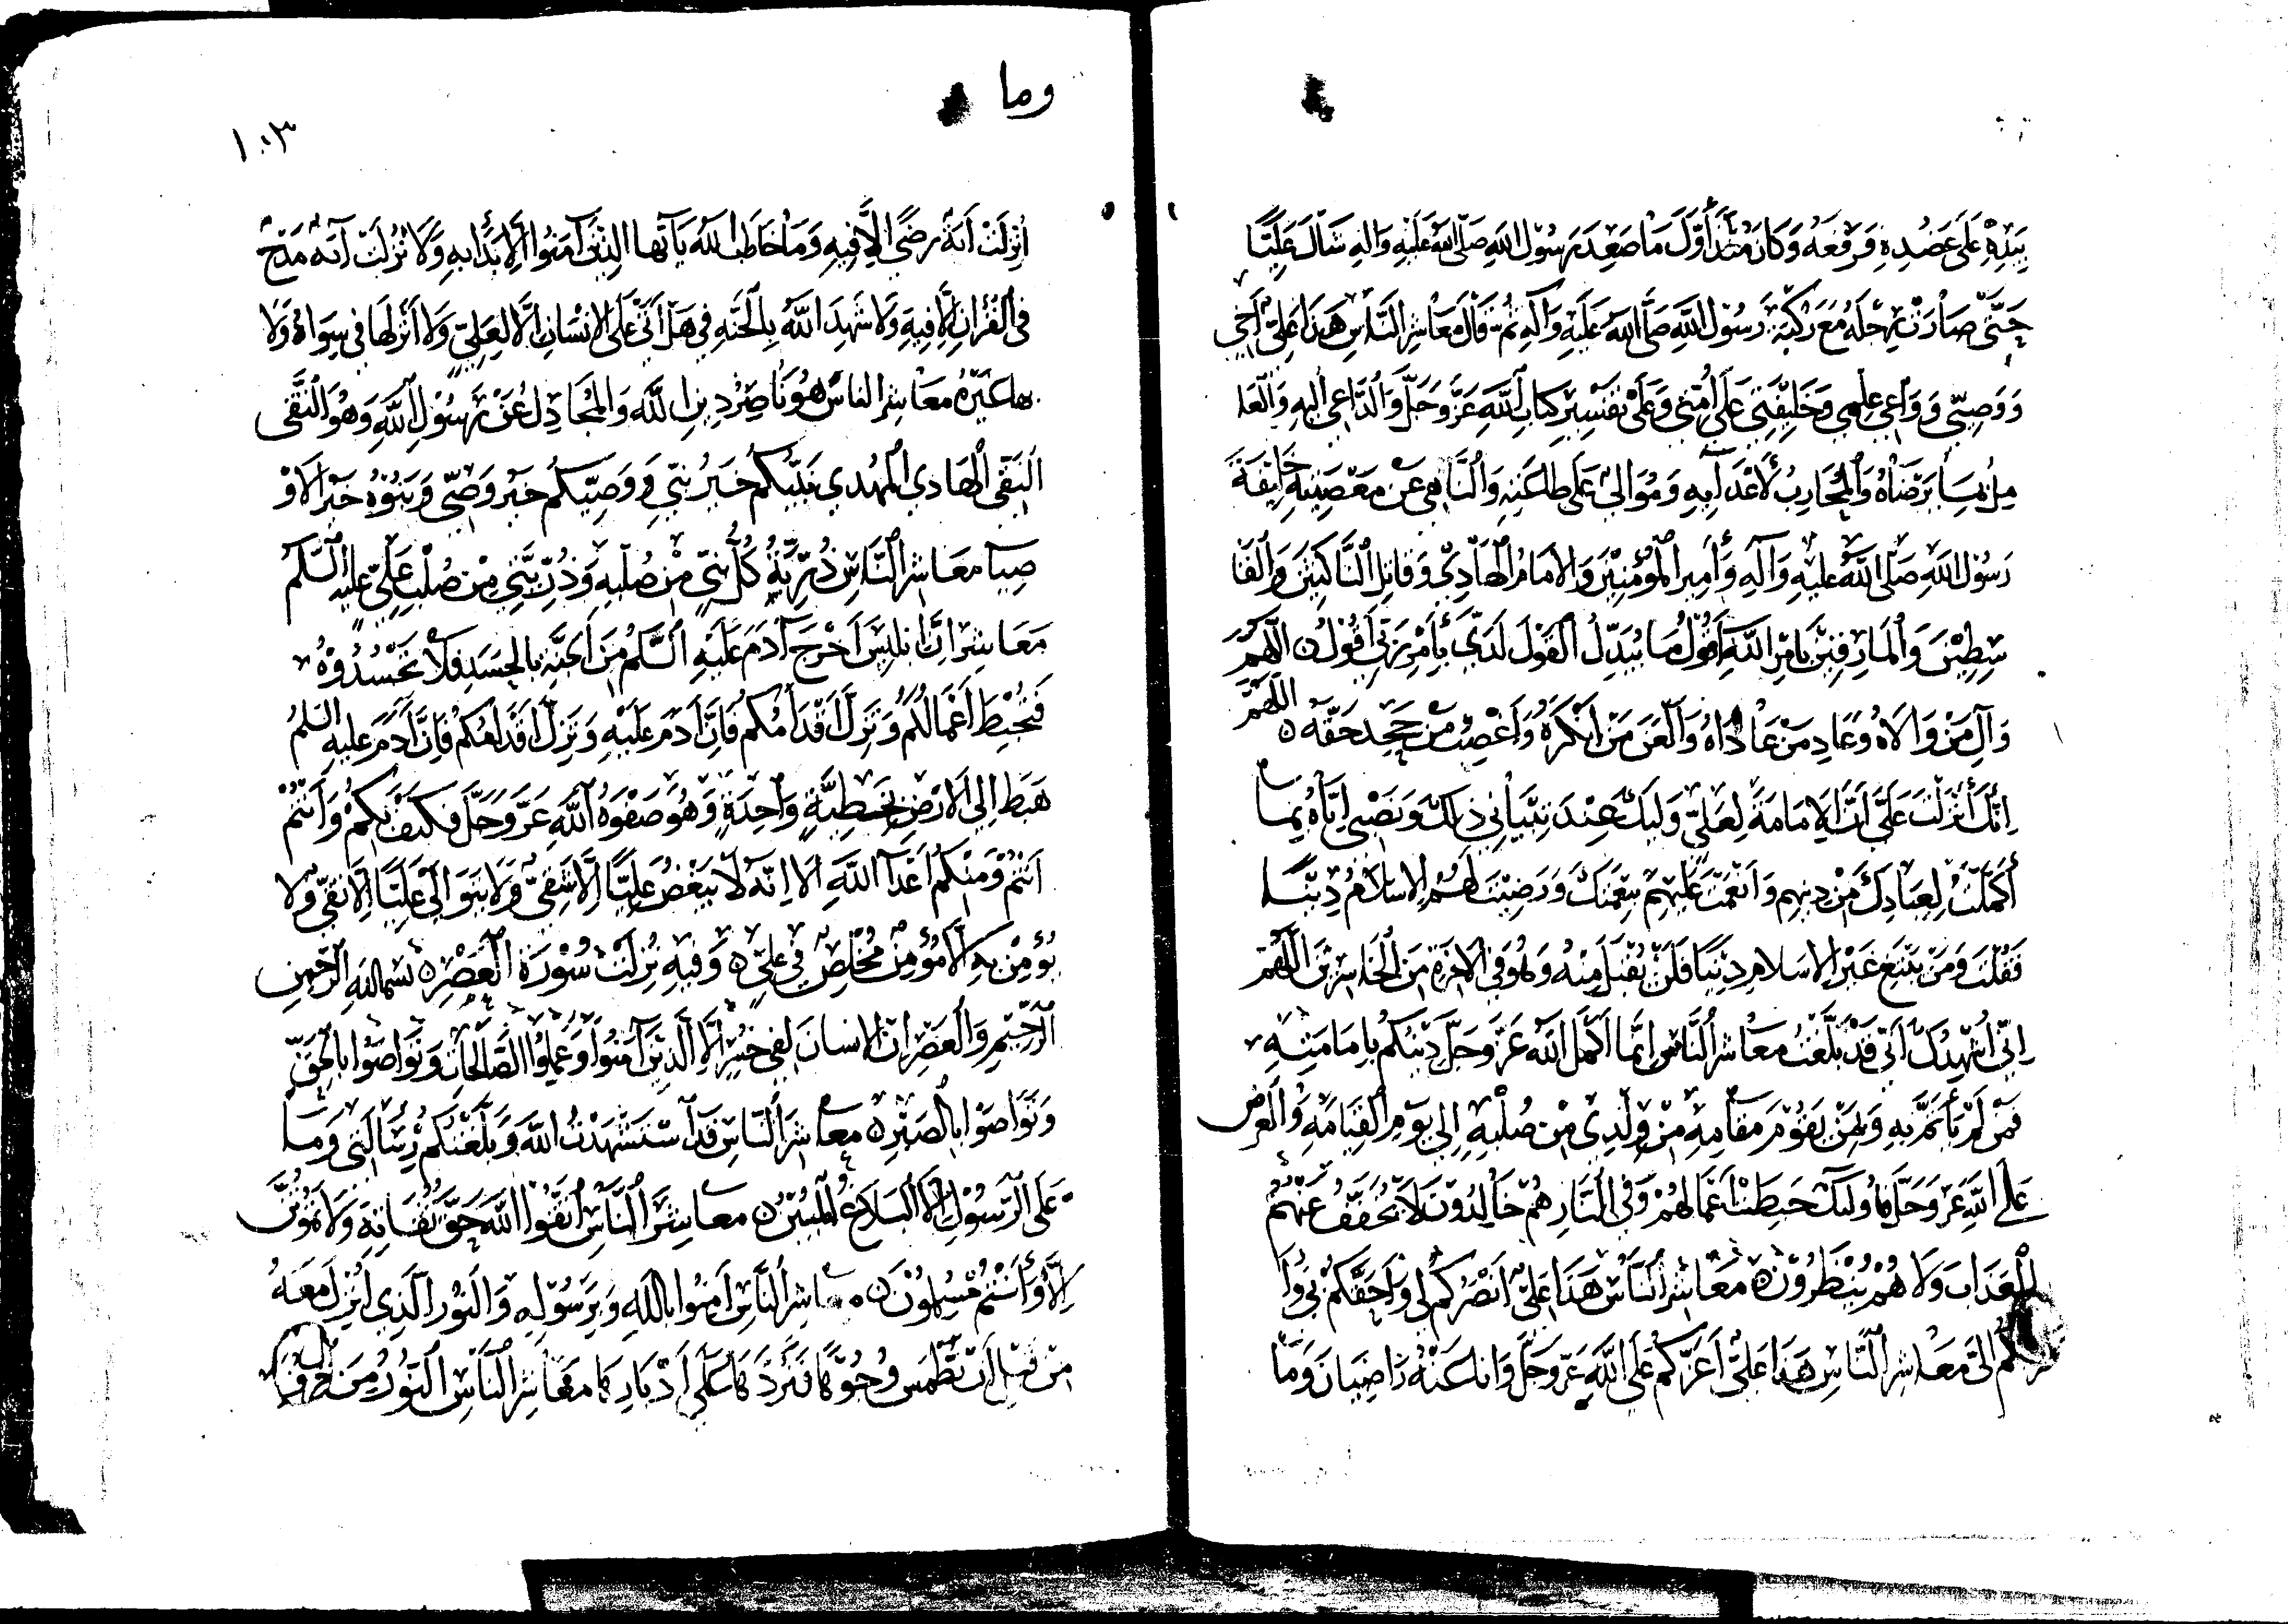 بِيَدِهِ عَلَى عَضُدِهِ فَرَفَعَهُ وَكَانَ مُنْذُ أَوَّلَ مَا صَعِدَ رَسُوْلُ اللهِ صَلَّى اللهُ عَلَيْهِ وَالِهِ شَالَ عَلِيًّا
حَتَّى صَارَتْ رِجْلُهُ مَعَ رُكْبَةِ رَسُوْلِ اللَّهِ صَلَّى اللهُ عَلَيْهِ وَآلِهِ ثُمَّ قَالَ مَعَاشِرَ النَّاسِ هَذَا عَلِيٌّ أَخِي
وَوَصِيِّي وَوَاعِي عِلْمِي وَخَلِيْفَتِي عَلَى أُمَّتِي وَعَلَى تَفْسِيْرِ كِتَابِ اللَّهِ عَزَّ وَجَلَّ وَالدَّاعِي إِلَيْهِ وَالْعَا
مِلُ بِمَا يَرْضَاهُ وَالْمُحَارِبُ لِأَعْدَآئِهِ وَمُوَالِي عَلَى طَاعَتِهِ وَالنَّاهِي عَنْ مَعْصِيَتِهِ خَلِيْفَةُ
رَسُوْلِ اللهِ صَلَّى اللَّهُ عَلَيْهِ وَآلِهِ وَأَمِيْرُ الْمُؤْمِنِيْنَ وَالإِمَامُ الْهَادِيْ وَقَاتِلُ النَّاكِثِيْنَ وَالْقَا
سِطِيْنَ وَالْمَارِقِيْنَ بِأَمْرِ اللَّهِ أَقُوْلُ مَا يُبَدَّلُ الْقَوْلُ لَدَيَّ بِأَمْرِ رَبِّي أَقُوْلُ اللَّهُمَّ
اللَّهُمَّ
وَآلِ مَنْ وَالَاهُ وَعَادِ مَنْ عَادَاهُ وَالْعَنْ مَنْ أَنْكَرَهُ وَاغْضِبْ مَنْ جَحَدَ حَقَّهُ
إِنَّكَ أَنْزَلْتَ عَلَيَّ أَنَّ الإِمَامَةَ لِعَلِيٍّ وَلِيِّكَ عِنْدَ تِبْيَانِي ذَلِكَ وَنَصْبِي إِيَّاهُ بِمَا
أَكْمَلْتَ لِعِبَادِكَ مِنْ دِيْنِهِمْ وَأَتْمَمْتَ عَلَيْهِمْ نِعْمَتَكَ وَرَضِيْتَ لَهُمُ الإِسْلَامَ دِيْنًا
فَقُلْتَ وَمَنْ يَبْتَغِ غَيْرَ الإِسْلَامِ دِيْنًا فَلَنْ يُقْبَلَ مِنْهُ وَهُوَ فِي الآخِرَةِ مِنَ الْخَاسِرِيْنَ اللَّهُمَّ
إِنِّي أُشْهِدُكَ أَنِّي قَدْ بَلَّغْتُ مَعَاشِرَ النَّاسِ إِنَّمَا أَكْمَلَ اللهُ عَزَّ وَجَلَّ دِيْنَكُمْ بِإِمَامَتِهِ
فَمَنْ لَمْ يَأْتَمَّ بِهِ وَبِمَنْ يَقُوْمُ مَقَامَهُ مِنْ وَلَدِيْ مِنْ صُلْبِهِ إِلَى يَوْمِ الْقِيَامَةِ وَالْعَرْضِ
عَلَى اللَّهِ عَزَّ وَجَلَّ فَأُولَئِكَ حَبِطَتْ أَعْمَالُهُمْ وَفِي النَّارِ هُمْ خَالِدُوْنَ لَا يُخَفَّفُ عَنْهُمُ
الْعَذَابُ وَلَا هُمْ يُنْظَرُوْنَ مَعَاشِرَ النَّاسِ هَذَا عَلِيٌّ أَنْصَرُكُمْ لِي وَأَحَقُّكُمْ بِي وَأَ
كُمْ إِلَيَّ مَعَاشِرَ النَّاسِ هَذَا عَلِيٌّ أَعَزُّكُمْ عَلَى اللَّهِ عَزَّ وَجَلَّ وَأَنَا عَنْهُ رَاضِيَانِ وَمَا
وما
١٠٣
أُنْزِلَتْ آيَةُ رِضًى إِلَّا فِيهِ وَمَا خَاطَبَ اللَّهُ يَا أَيُّهَا الَّذِيْنَ آمَنُوا إِلَّا بَدَأَ بِهِ وَلَا نُزِّلَتْ آيَةُ مَدْحٍ
فِي الْقُرْآنِ إِلَّا فِيهِ وَلَا شَهِدَ اللَّهُ بِالْجَنَّةِ فِي هَلْ أَتَى عَلَى الإِنْسَانِ إِلَّا لِعَلِيٍّ وَلَا أَنْزَلَهَا فِي سِوَاهُ وَلَا
بها غَيْرَهُ مَعَاشِرَ النَّاسِ هُوَ نَاصِرُ دِيْنِ اللَّهِ وَالْمُجَادِلُ عَنْ رَسُوْلِ اللَّهِ وَهُوَ التَّقِيُّ
النَّقِيُّ الْهَادِي الْمَهْدِي نَبِيُّكُمْ خَيْرُ نَبِيٍّ وَوَصِيُّكُمْ خَيْرُ وَصِيٍّ وَبَنُوْهُ خَيْرُ الأَوْ
صِيَآءِ مَعَاشِرَ النَّاسِ ذُرِّيَّةُ كُلِّ نَبِيٍّ مِنْ صُلْبِهِ وَذُرِّيَّتِي مِنْ صُلْبِ عَلِيٍّ عَلَيْهِ السَّلَمُ
مَعَاشِرَ إِنَّ إِبْلِيْسَ أَخْرَجَ آدَمَ عَلَيْهِ السَّلَمُ مِنَ الْجَنَّةِ بِالْحَسَدِ فَلَا تَحْسُدُوْهُ
فَتُحْبَطَ أَعْمَالُكُمْ وَتَزِلَّ أَقْدَامُكُمْ فَإِنَّ آدَمَ عَلَيْهِ وَتَزِلَّ أَقْدَامُكُمْ فَإِنَّ آدَمَ عَلَيْهِ السَّلَمُ
هَبَطَ إِلَى الأَرْضِ بِخَطِيَّةٍ وَاحِدَةٍ وَهُوَ صَفْوَةُ اللَّهِ عَزَّ وَجَلَّ فَكَيْفَ بِكُمْ وَأَنْتُمْ
أَنْتُمْ وَمِنْكُمْ أَعْدَآءُ اللَّهِ أَلَا إِنَّهُ لَا يُبْغِضُ عَلِيًّا إِلَّا شَقِيٌّ وَلَا يَتَوَالَى عَلِيًّا إِلَّا تَقِيٌّ وَلَا
يُؤْمِنُ بِهِ إِلَّا مُؤْمِنٌ مُخْلِصٌ فِي عَلِيٍّ وَفِيهِ نُزِلَتْ سُوْرَةُ الْعَصْرِ بسم اللهِ الرَّحْمنِ
الرَّحِيْمِ وَالْعَصْرِ إِنَّ الإِنسَانَ لَفِي خُسْرٍ إِلَّا الَّذِيْنَ آمَنُوا وَعَمِلُوا الصَّالِحَاتِ وَتَوَاصَوْا بِالْحَقِّ
وَتَوَاصَوْا بِالصَّبْرِ مَعَاشِرَ النَّاسِ قَدِ اسْتَشْهَدْتُ اللَّهَ وَبَلَّغْتُكُمْ رِسَالَتِي وَمَا
عَلَى الرَّسُوْلِ إِلَّا الْبَلَاغُ الْمُبِيْنُ مَعَاشِرَ النَّاسِ اتَّقُوا اللَّهَ حَقَّ تُقَاتِهِ وَلَا تَمُوْتُنَّ
إِلَّا وَأَنْتُمْ مُسْلِمُوْنَ مَعَاشِرَ النَّاسِ آمِنُوا بِاللَّهِ وَبِرَسُوْلِهِ وَالنُّوْرِ الَّذِي أُنْزِلَ مَعَهُ
مِنْ قَبْلِ أَنْ نَطْمِسَ وُجُوْهًا فَنَرُدَّهَا عَلَى أَدْبَارِهَا مَعَاشِرَ النَّاسِ النُّوْرُ مِنَ